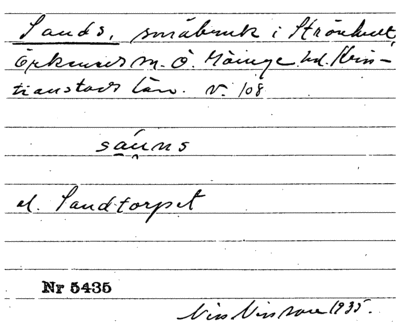 Sands, småbruk i Strönhult,
Örkeneds sn. Ö. Göinge hd. Kris-
tianstads län. v. 108
sáuns
el. Sandtorpet
Nr 5435
Nils Nilsson 1935.